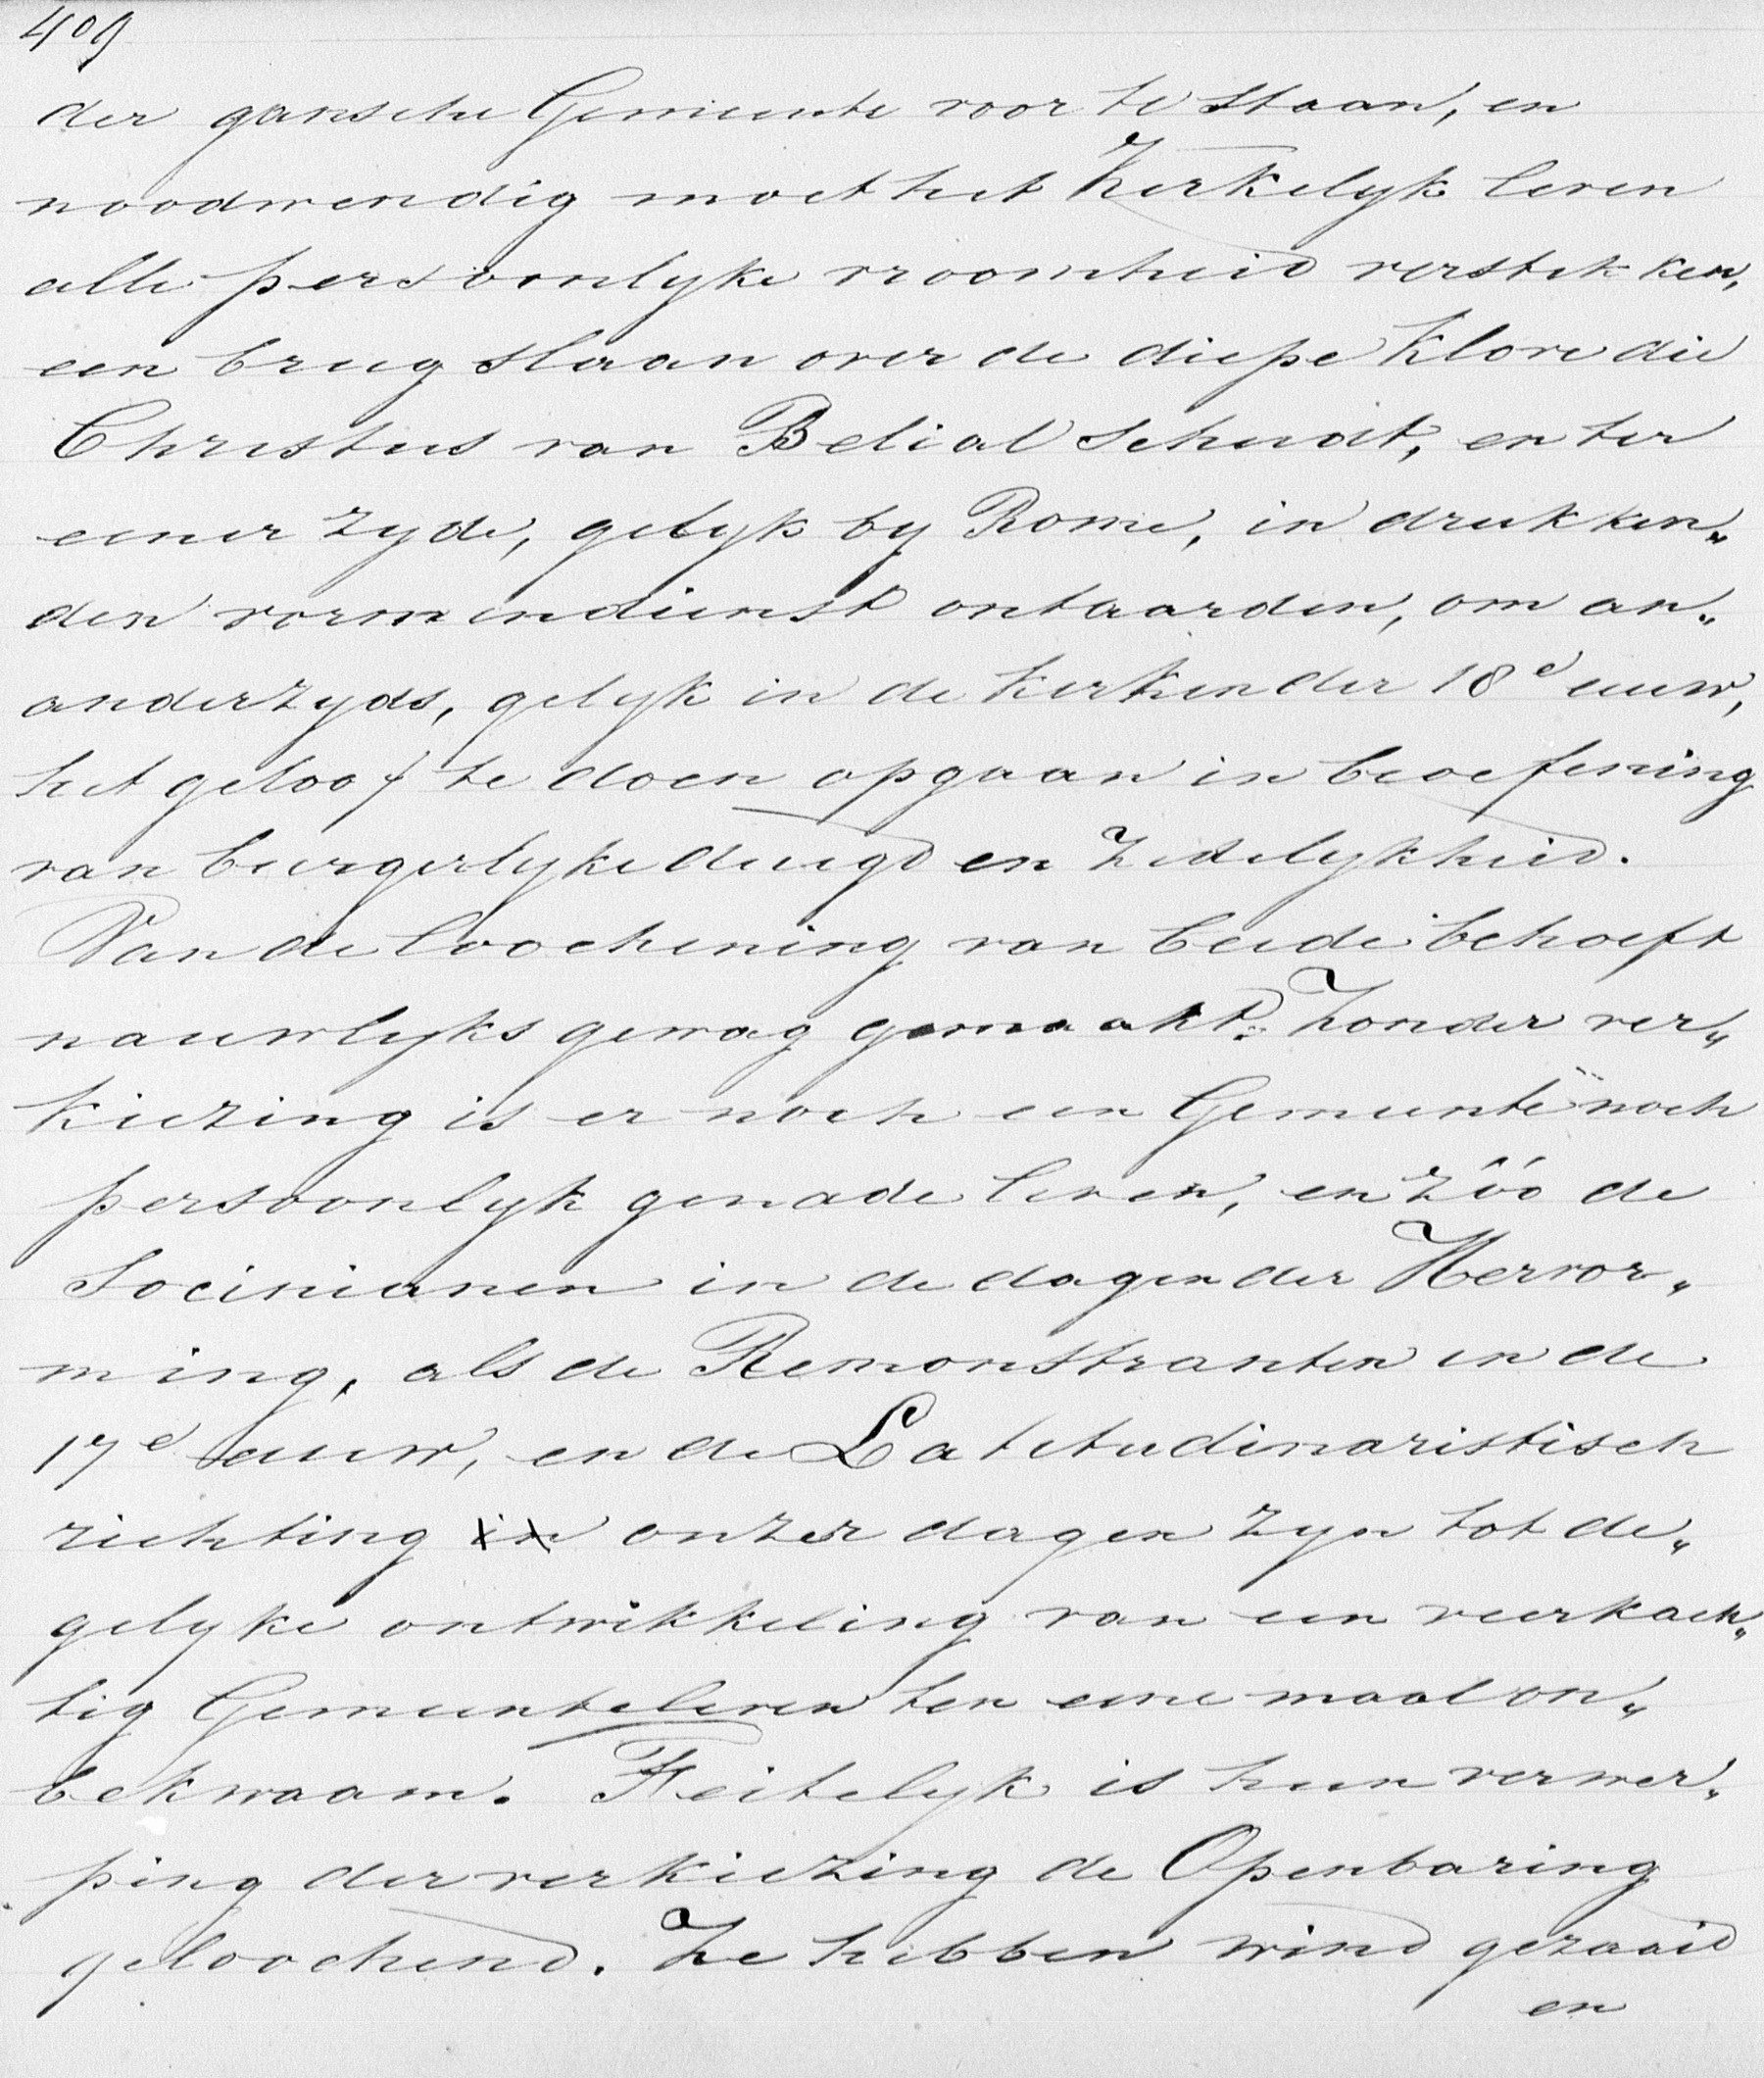 409
der gansche Gemeente voor te staan, en
noodwendig moet het Kerkelyk leven
alle persoonlyke vroomheid verstikken,
een brug slaan over de diepe Klove die
Christus van Belial scheidt, en ter
eener zyde, gelyk by Rome, in drukken„
den vormendienst ontaarden, om an„
anderzyds, gelyk in de Kerken der 18e eeuw,
het geloof te doen opgaan in beoefening
van burgerlyke deugd en Zedelykheid.
Van de loochening van beide behoeft
nauwlyks gewag gemaakt. Zonder ver„
kiezing is er noch een Gemeente noch
persoonlyk genade leven, en zóó de
Socinianen in de dagen der Hervor„
ming, als de Remonstranten in de
17e eeuw, en de Latitudinaristisch
richting in onzer dagen zyn tot de„
gelyke ontwikkeling van een veerkach„
tig Gemeenteleven ten eene maal on„
bekwaam. Feitelyk is hun verwer„
ping der verkiezing de Openbaring
geloochend. Ze hebben wind gezaaid
en